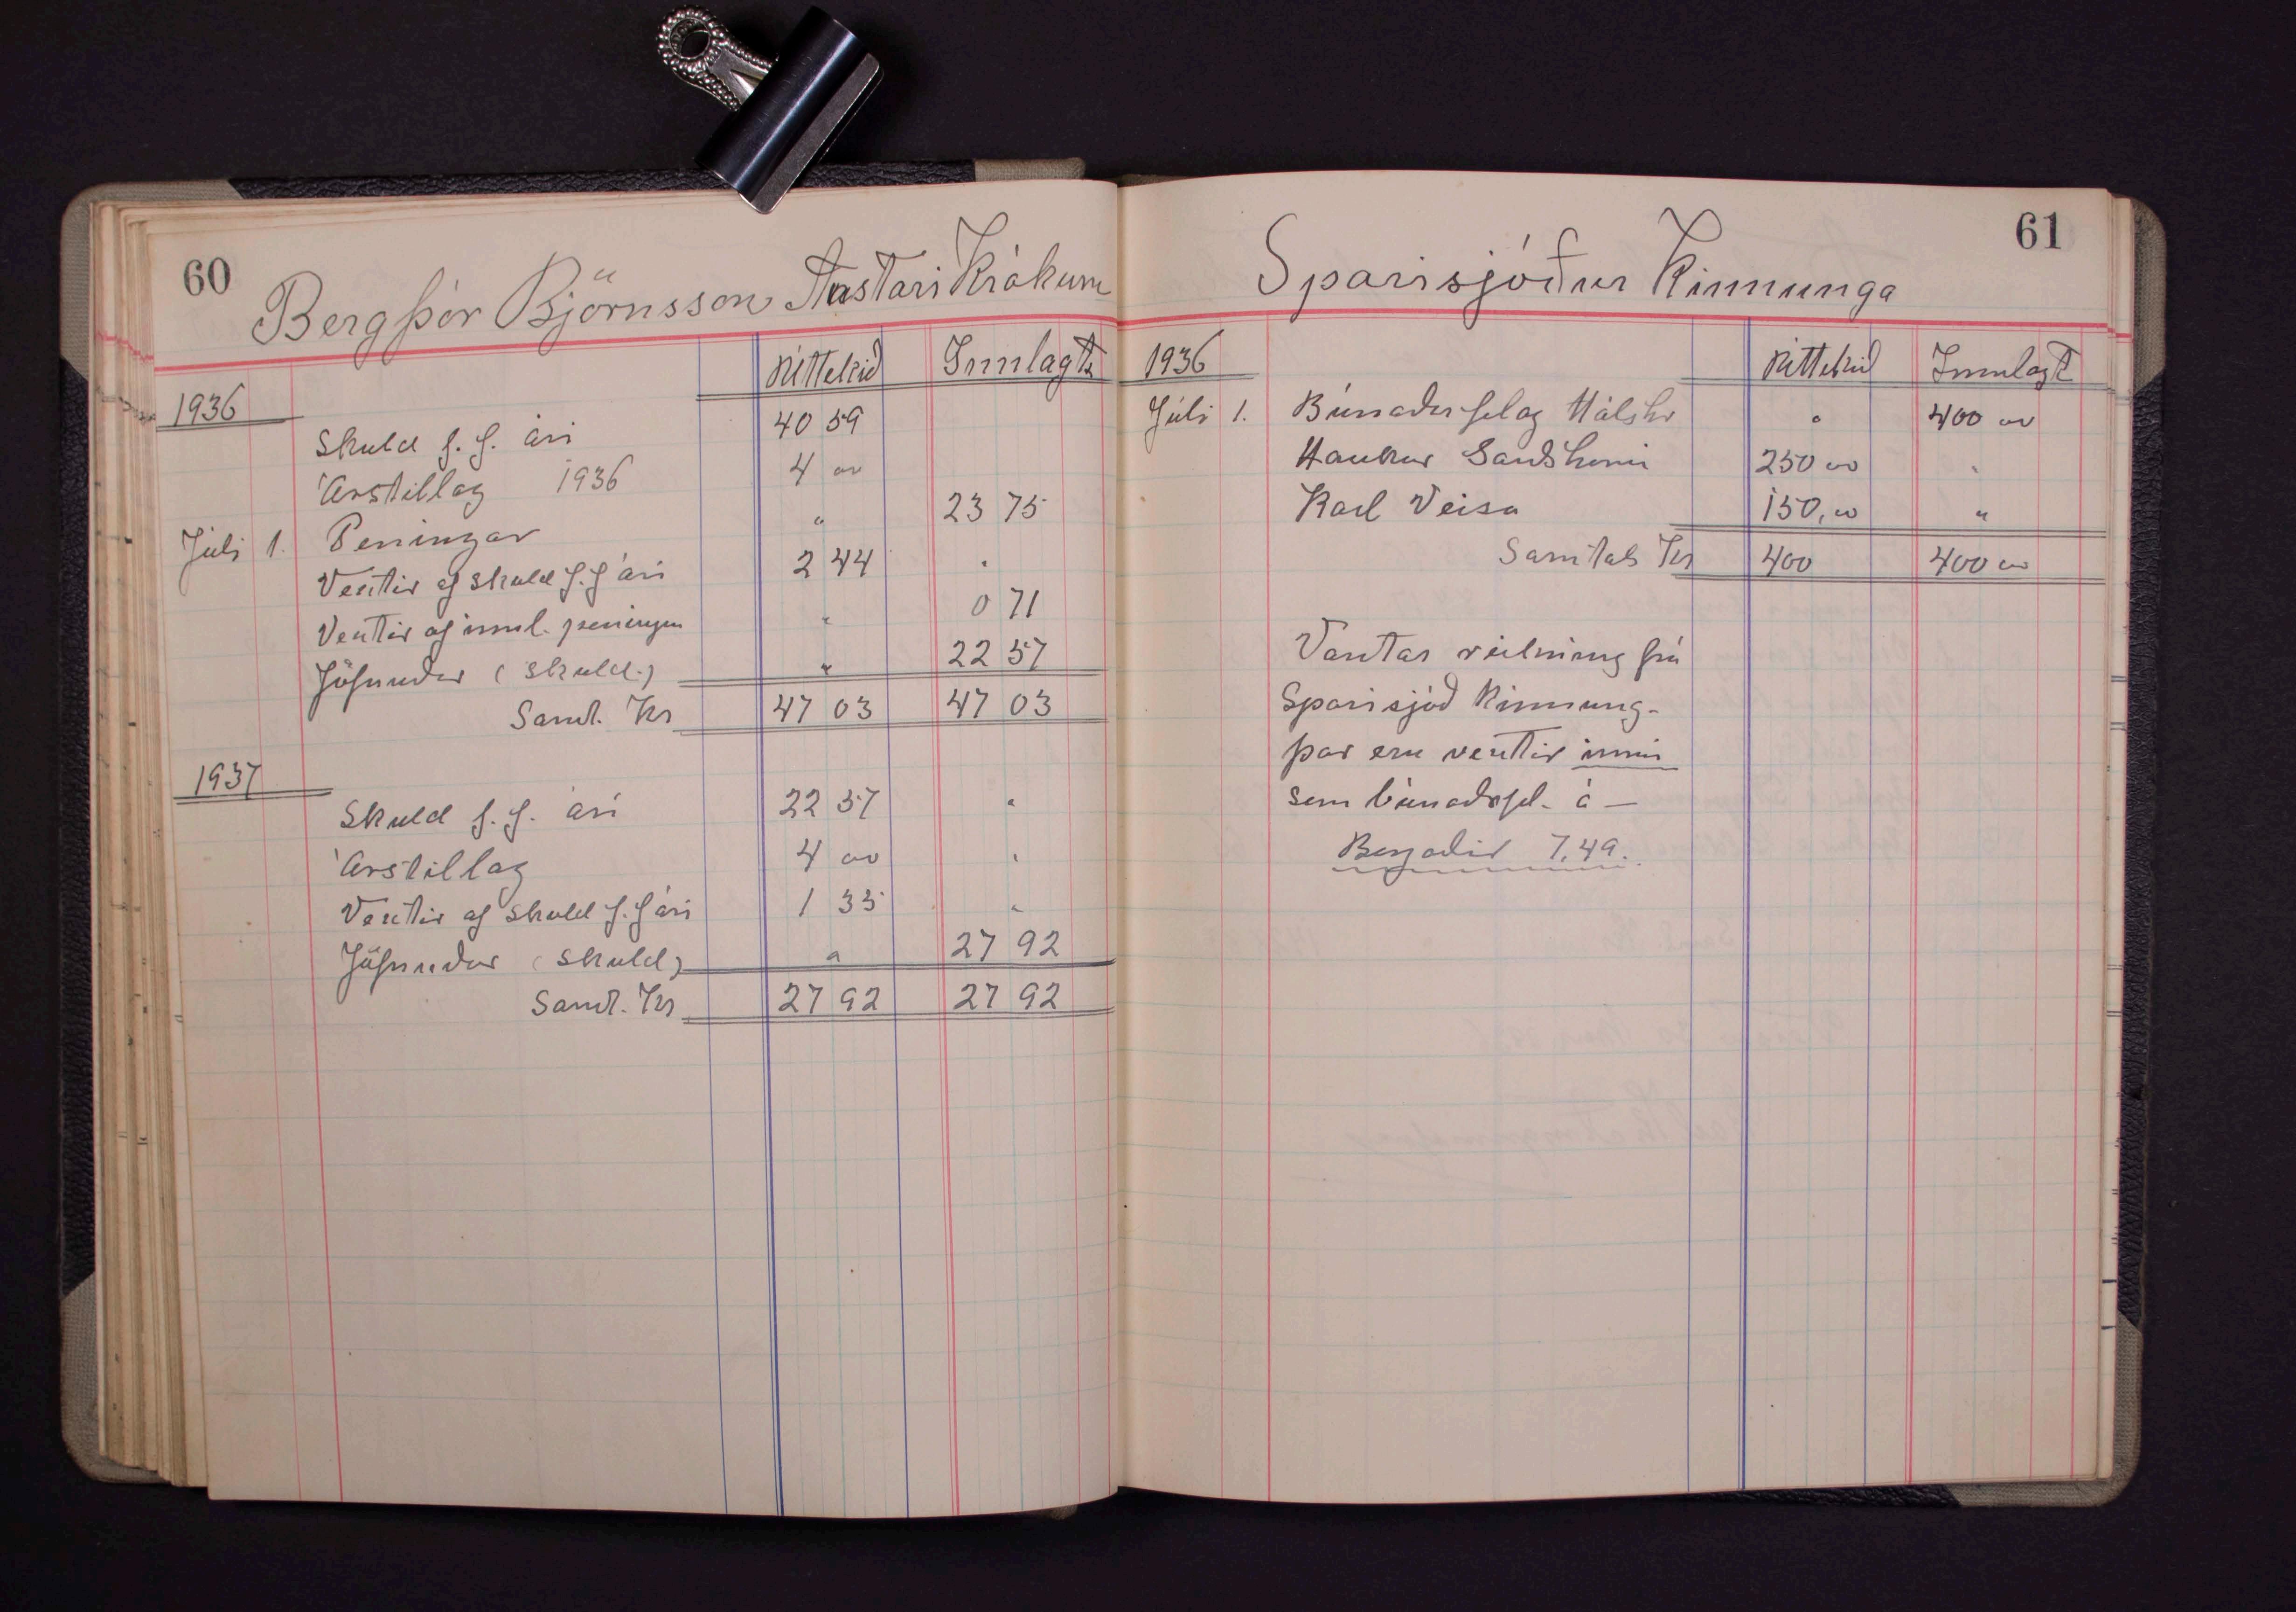 60
Bergþór Björnsson Austari Krókum
Úttekið Innlagt
1936
Skuld f. f. ári 40 59
Árstillag 1936 4 00
Júli 1. Peningar " 23 75
Vextir af skuld f. f ári 2 44 "
Vextir af innl. peningum " 0 71
Jöfnuður (skuld.) " 22 57
Samt. Kr 47 03 47 03
1937
Skuld f. f. ári 22 57 "
Árstillag 4 00 "
Vextir af skuld f. f ári 1 35 "
Jöfnuður (skuld) " 27 92
Samt. Kr 27 92 27 92
61
Sparisjóður Kinnunga
1936 Úttekið Innlagt
Júli 1. Búnaðarfelag Hálshr " 400 00
Haukur Garðshorni 250 00 "
Karl Veisu 150,00 "
Samtals Kr 400 400 00
Vantar reikning frá
Sparisjóð Kinnung-
þar eru vextir inni
sem búnaðarfel. á —
Borgaðir 7,49.